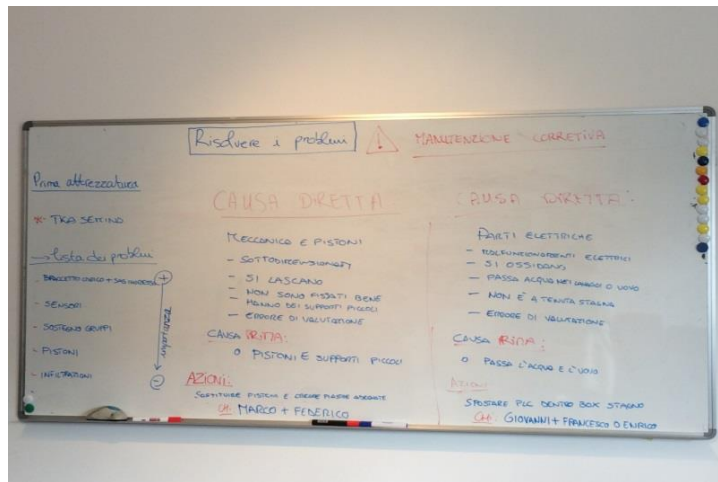 Risolvere i problemi
MANUTENZIONE CORRETIVA
Prima attrezzatura
* TRA SETTINO
lista dei problemi
- SENSORI
- SOSTEGNO GRUPPI
- PISTONI
- INFILTRAZIONI
+
importanza
-
CAUSA DIRETTA
MECCANICO E PISTONI
- SOTTODIMENSIONATI
- SI LASCANO
- NON SONO FISSATI BENE
- HANNO DEI SUPPORTI PICCOLI
- ERRORE DI VALUTAZIONE
CAUSA PRIMA:
o PISTONI E SUPPORTI PICCOLI
AZIONI:
SOSTITUIRE PISTONI E CREARE PIASTRE ADEGUATE
CHI: MARCO + FEDERICO
CAUSA DIRETTA:
PARTI ELETTRICHE
- MALFUNZIONAMENTI ELETTRICI
- SI OSSIDANO
- PASSA ACQUA NEI O UOVO
- NON È A TENUTA STAGNA
- ERRORE DI VALUTAZIONE
CAUSA PRIMA:
o PASSA L'ACQUA E L'UOVO
AZIONI
SPOSTARE PLC DENTRO BOX STAGNO
CHI: GIOVANNI + FRANCESCO O ENRICO